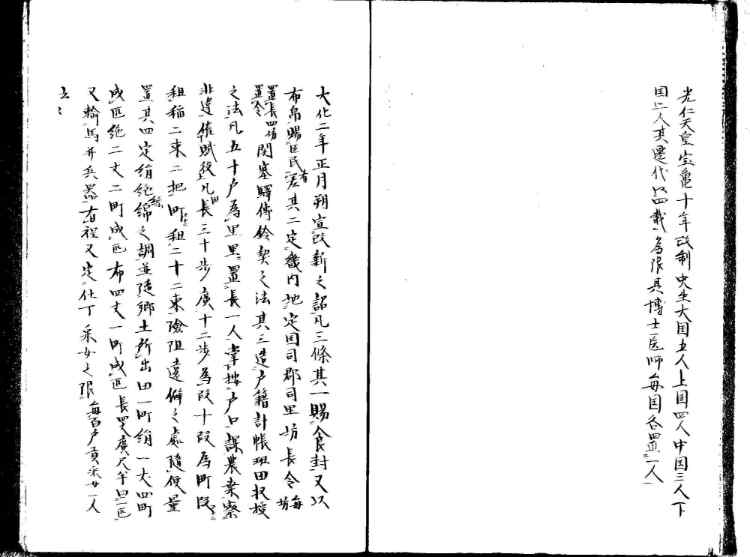 光仁天皇宝亀十年改制史生大国五人上国四人中国三人下
国二人其遷代以四載為限其博士医師毎国各置一人
大化二年正月朔宣改新之詔凡三條其一賜食封又以
布帛賜臣民有差其二定畿内地定国司郡司里坊長令毎坊
置長四坊置令関塞駅傳鈴契之法其三造戸籍計帳班田収授
之法凡五十戸為里里置長一人掌按戸口課農桒察
非違催賦役凡田長三十歩廣十二歩為段十段為町段
租稲二束二把町租二十二束險阻遠僻之處隨便量
置其四定絹絁絲綿之調並随郷土所出田一町絹一丈四町
成匹絁二丈二町成匹布四丈一町成匹長四丈廣尺半田一匹
又輸馬并兵器有程又定仕丁采女之限毎百戸貢采女一人
云々